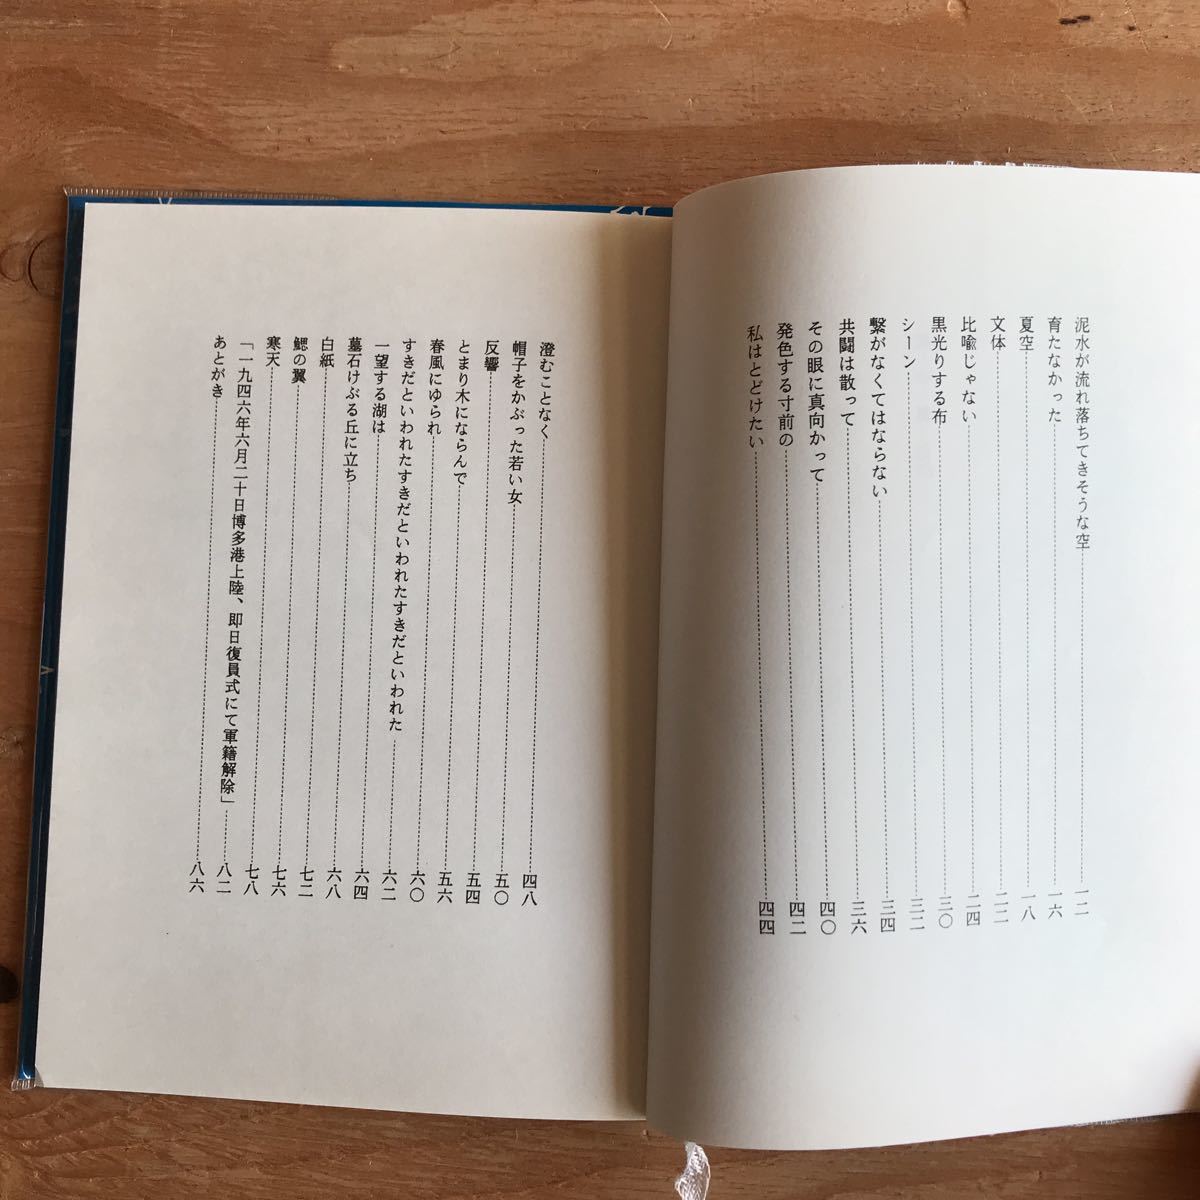 泥水が流れ落ちてきそうな空 一二
育たなかった 一六
夏空 一八
文体 二二
比喩じゃない 二四
黒光りする布 三〇
シーン 三二
繋がなくてはならない 三四
共闘は散って 三六
その眼に真向かって 四〇
発色する寸前の 四二
私はとどけたい 四四
澄むことなく 四八
帽子をかぶった若い女 五〇
反響 五四
とまり木にならんで 五六
春風にゆられ 六〇
すきだといわれたすきだといわれたすきだといわれた 六二
一望する湖は 六四
墓石けぶる丘に立ち 六八
白紙 七二
鰓の翼 七六
寒天 七八
「一九四六年六月二十日博多港上陸、即日復員式にて軍籍解除」 八二
あとがき 八六